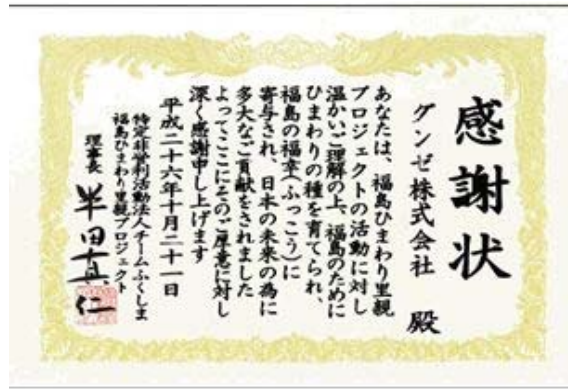 感謝状
グンゼ株式会社 殿
あなたは、福島ひまわり里親
プロジェクトの活動に対し
温かいご理解の上、福島のために
ひまわりの種を育てられ、
福島の福幸(ふっこう)に
寄与され、日本の未来の為に
多大なご貢献をされました
よってここにそのご厚意に対し
深く感謝申し上げます
平成二十六年十月二十一日
特定非営利活動法人チームふくしま
福島ひまわり里親プロジェクト
理事長 半田真仁